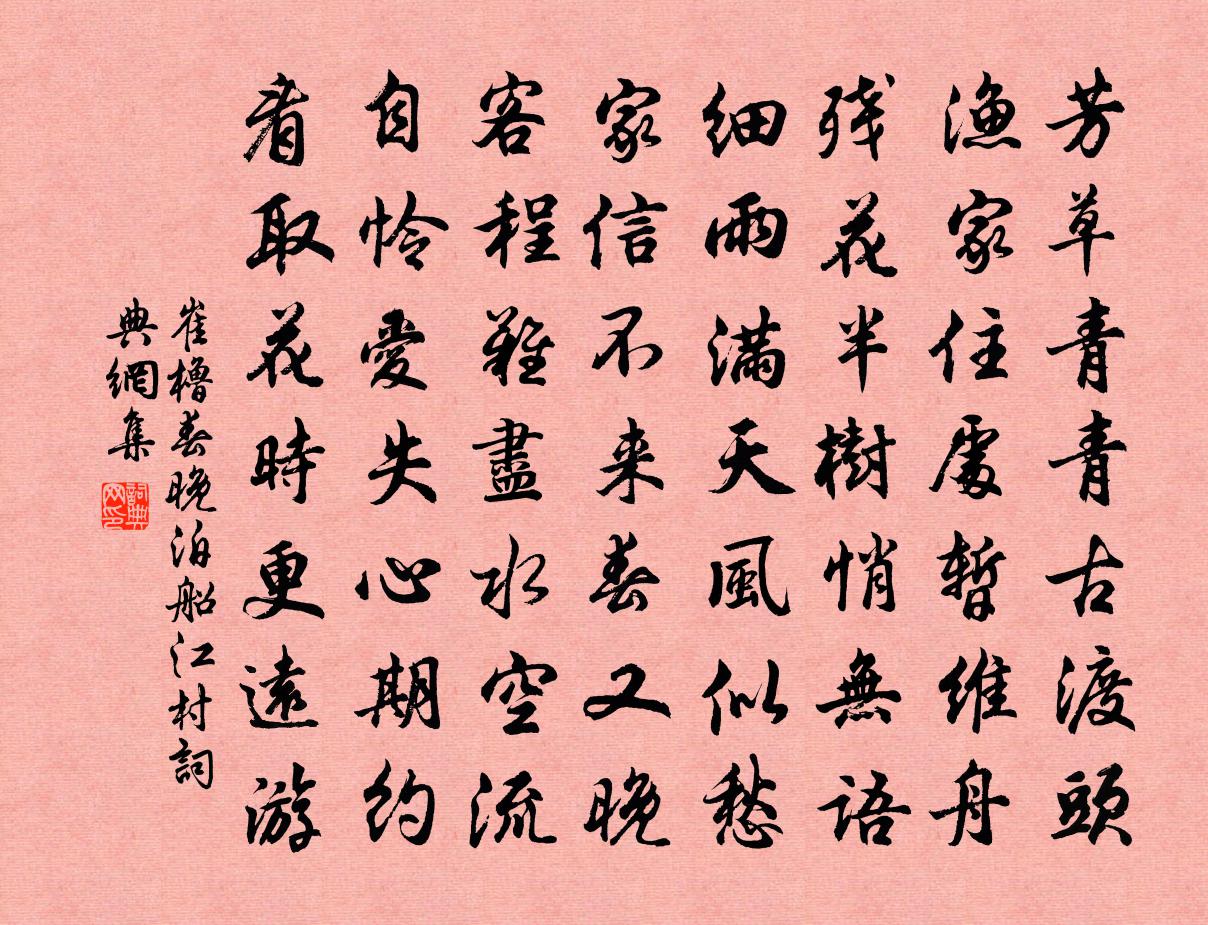 芳草青青古渡頭
漁家住處暫維舟
残花半樹悄無語
细雨滿天風似愁
家信不来春又晚
客程難盡水空流
自怜愛失心期約
看取花時更遠游
崔櫓春晚泊船江村詞
典網集
詞典網印